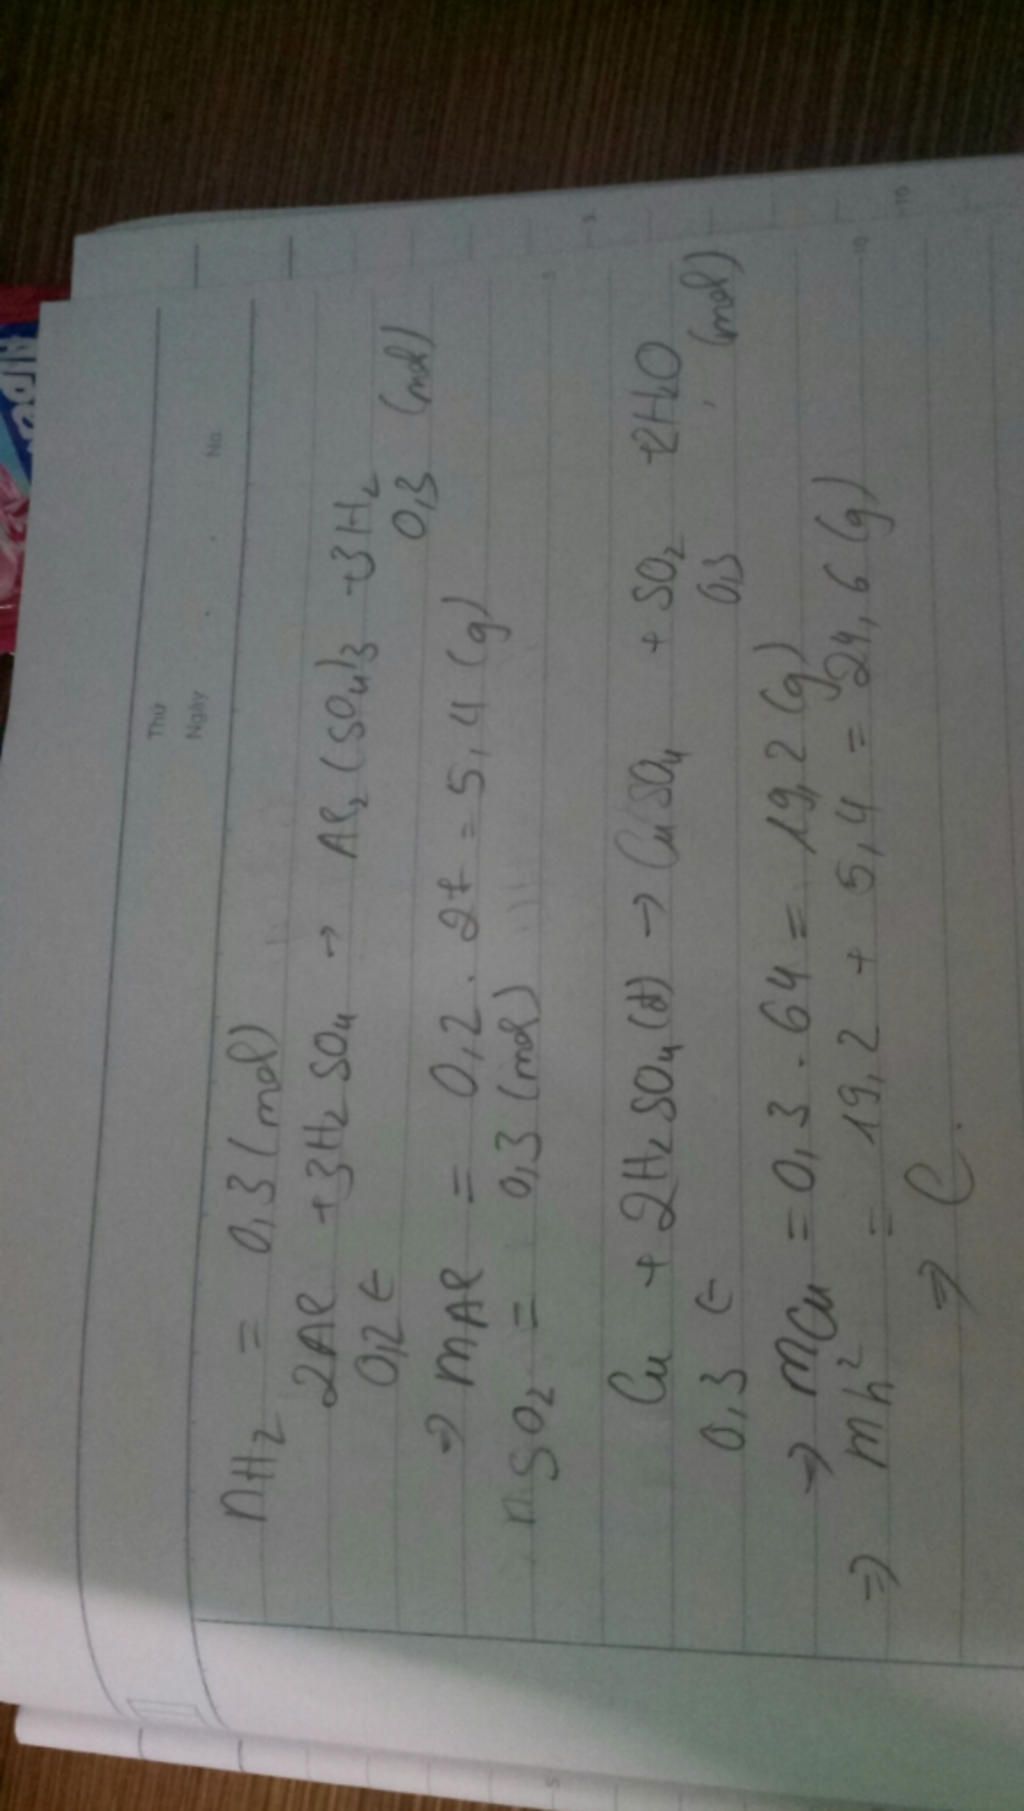 Thứ
Ngày
No.
nH2 = 0,3 (mol)
2Al + 3H2SO4 → Al2(SO4)3 + 3H2
0,2 ← 0,3 (mol)
⇒ mAl = 0,2 . 27 = 5,4 (g)
nSO2 = 0,3 (mol)
Cu + 2H2SO4(đ) → CuSO4 + SO2 + 2H2O
0,3 ← 0,3 (mol)
⇒ mCu = 0,3 . 64 = 19,2 (g)
⇒ mh² = 19,2 + 5,4 = 24,6 (g)
⇒ C.